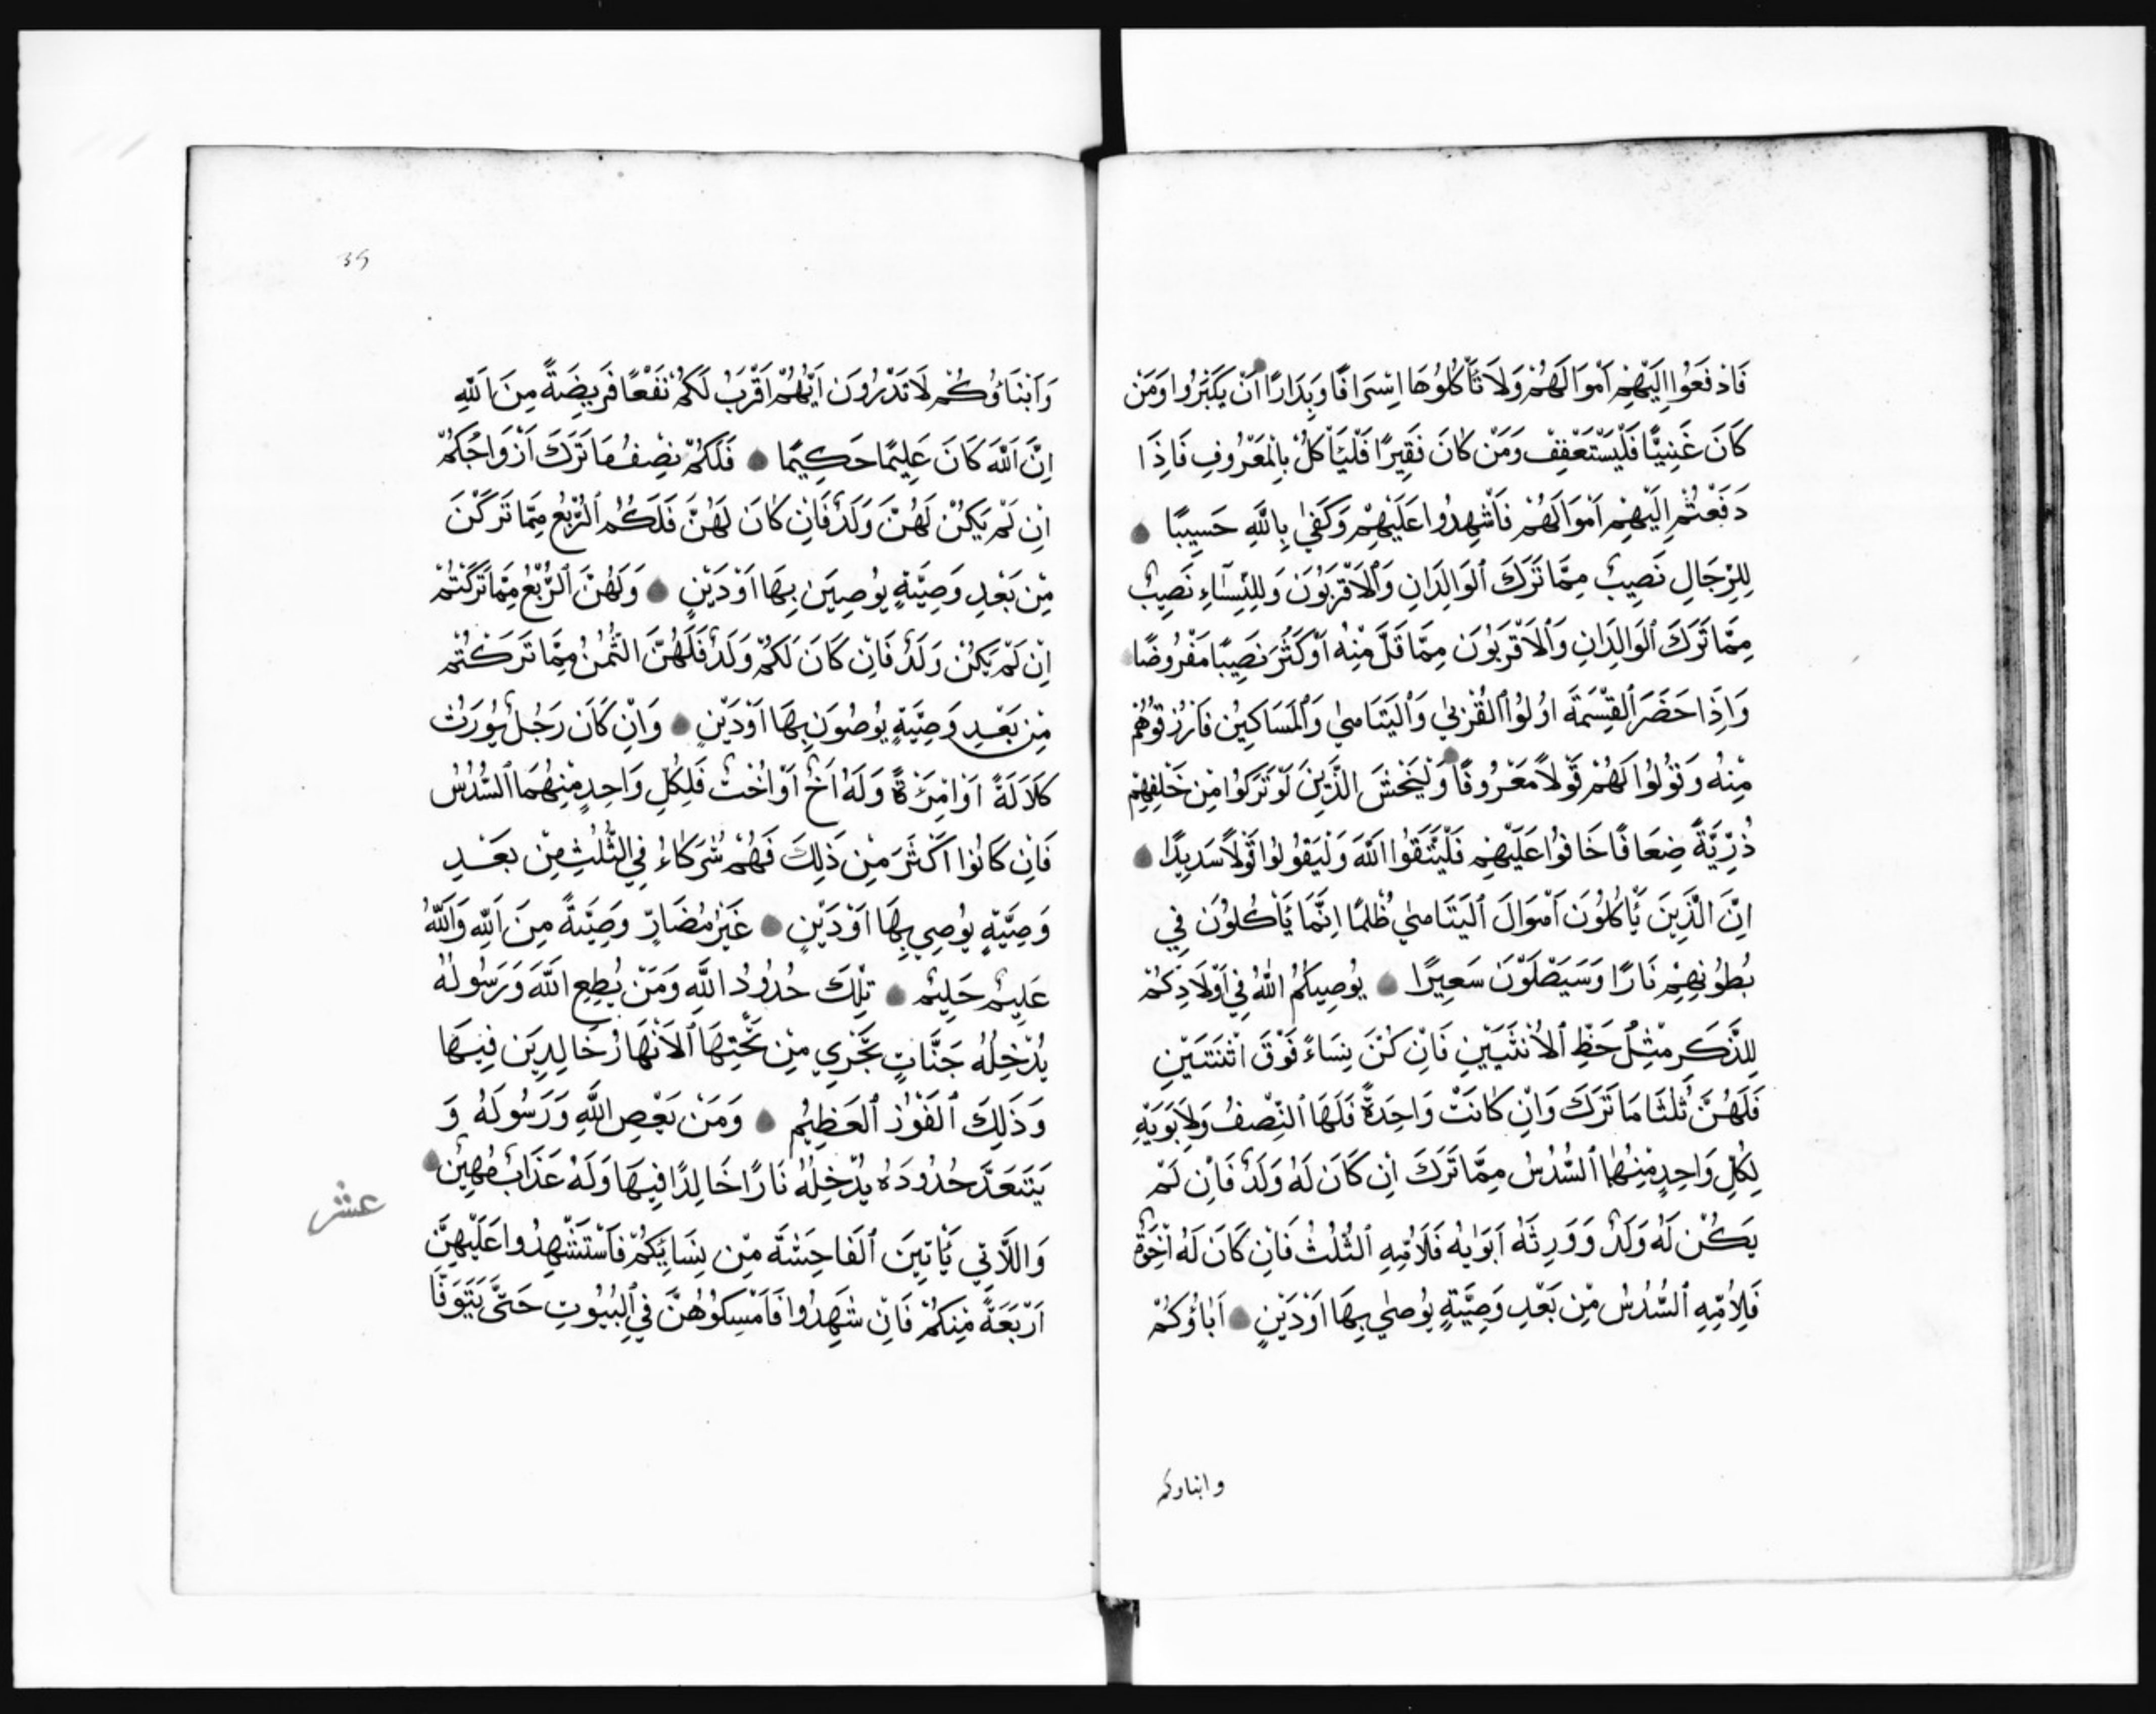 فَادْفَعُوا إِلَيْهِمْ أَمْوَالَهُمْ وَلَا تَأْكُلُوهَا إِسْرَافًا وَبِدَارًا أَنْ يَكْبَرُوا وَمَنْ
كَانَ غَنِيًّا فَلْيَسْتَعْفِفْ وَمَنْ كَانَ فَقِيرًا فَلْيَأْكُلْ بِالْمَعْرُوفِ فَإِذَا
دَفَعْتُمْ إِلَيْهِمْ أَمْوَالَهُمْ فَأَشْهِدُوا عَلَيْهِمْ وَكَفَى بِاللَّهِ حَسِيبًا
لِلرِّجَالِ نَصِيبٌ مِمَّا تَرَكَ الْوَالِدَانِ وَالْأَقْرَبُونَ وَلِلنِّسَاءِ نَصِيبٌ
مِمَّا تَرَكَ الْوَالِدَانِ وَالْأَقْرَبُونَ مِمَّا قَلَّ مِنْهُ أَوْ كَثُرَ نَصِيبًا مَفْرُوضًا
وَإِذَا حَضَرَ الْقِسْمَةَ أُولُوا الْقُرْبَى وَالْيَتَامَى وَالْمَسَاكِينُ فَارْزُقُوهُمْ
مِنْهُ وَقُولُوا لَهُمْ قَوْلًا مَعْرُوفًا وَلْيَخْشَ الَّذِينَ لَوْ تَرَكُوا مِنْ خَلْفِهِمْ
ذُرِّيَّةً ضِعَافًا خَافُوا عَلَيْهِمْ فَلْيَتَّقُوا اللَّهَ وَلْيَقُولُوا قَوْلًا سَدِيدًا
إِنَّ الَّذِينَ يَأْكُلُونَ أَمْوَالَ الْيَتَامَى ظُلْمًا إِنَّمَا يَأْكُلُونَ فِي
بُطُونِهِمْ نَارًا وَسَيَصْلَوْنَ سَعِيرًا يُوصِيكُمُ اللَّهُ فِي أَوْلَادِكُمْ
لِلذَّكَرِ مِثْلُ حَظِّ الْأُنْثَيَيْنِ فَإِنْ كُنَّ نِسَاءً فَوْقَ اثْنَتَيْنِ
فَلَهُنَّ ثُلُثَا مَا تَرَكَ وَإِنْ كَانَتْ وَاحِدَةً فَلَهَا النِّصْفُ وَلِأَبَوَيْهِ
لِكُلِّ وَاحِدٍ مِنْهُمَا السُّدُسُ مِمَّا تَرَكَ إِنْ كَانَ لَهُ وَلَدٌ فَإِنْ لَمْ
يَكُنْ لَهُ وَلَدٌ وَوَرِثَهُ أَبَوَاهُ فَلِأُمِّهِ الثُّلُثُ فَإِنْ كَانَ لَهُ إِخْوَةٌ
فَلِأُمِّهِ السُّدُسُ مِنْ بَعْدِ وَصِيَّةٍ يُوصِي بِهَا أَوْ دَيْنٍ آبَاؤُكُمْ
وابناوكم
35
وَأَبْنَاؤُكُمْ لَا تَدْرُونَ أَيُّهُمْ أَقْرَبُ لَكُمْ نَفْعًا فَرِيضَةً مِنَ اللَّهِ
إِنَّ اللَّهَ كَانَ عَلِيمًا حَكِيمًا فَلَكُمْ نِصْفُ مَا تَرَكَ أَزْوَاجُكُمْ
إِنْ لَمْ يَكُنْ لَهُنَّ وَلَدٌ فَإِنْ كَانَ لَهُنَّ فَلَكُمُ الرُّبُعُ مِمَّا تَرَكْنَ
مِنْ بَعْدِ وَصِيَّةٍ يُوصِينَ بِهَا أَوْ دَيْنٍ وَلَهُنَّ الرُّبُعُ مِمَّا تَرَكْتُمْ
إِنْ لَمْ يَكُنْ وَلَدٌ فَإِنْ كَانَ لَكُمْ وَلَدٌ فَلَهُنَّ الثُّمُنُ مِمَّا تَرَكْتُمْ
مِنْ بَعْدِ وَصِيَّةٍ يُوصُونَ بِهَا أَوْ دَيْنٍ وَإِنْ كَانَ رَجُلٌ يُورَثُ
كَلَالَةً أَوِ امْرَةٌ وَلَهُ أَخٌ أَوْ أُخْتٌ فَلِكُلِّ وَاحِدٍ مِنْهُمَا السُّدُسُ
فَإِنْ كَانُوا أَكْثَرَ مِنْ ذَلِكَ فَهُمْ شُرَكَاءُ فِي الثُّلُثِ مِنْ بَعْدِ
وَصِيَّةٍ يُوصِي بِهَا أَوْ دَيْنٍ غَيْرَ مُضَارٍّ وَصِيَّةً مِنَ اللَّهِ وَاللَّهُ
عَلِيمٌ حَلِيمٌ تِلْكَ حُدُودُ اللَّهِ وَمَنْ يُطِعِ اللَّهَ وَرَسُولَهُ
يُدْخِلْهُ جَنَّاتٍ تَجْرِي مِنْ تَحْتِهَا الْأَنْهَارُ خَالِدِينَ فِيهَا
وَذَلِكَ الْفَوْزُ الْعَظِيمُ وَمَنْ يَعْصِ اللَّهَ وَرَسُولَهُ وَ
يَتَعَدَّ حُدُودَهُ يُدْخِلْهُ نَارًا خَالِدًا فِيهَا وَلَهُ عَذَابٌ مُهِينٌ
عشر
وَاللَّاتِي يَأْتِينَ الْفَاحِشَةَ مِنْ نِسَائِكُمْ فَاسْتَشْهِدُوا عَلَيْهِنَّ
أَرْبَعَةً مِنْكُمْ فَإِنْ شَهِدُوا فَأَمْسِكُوهُنَّ فِي الْبُيُوتِ حَتَّى يَتَوَفَّا